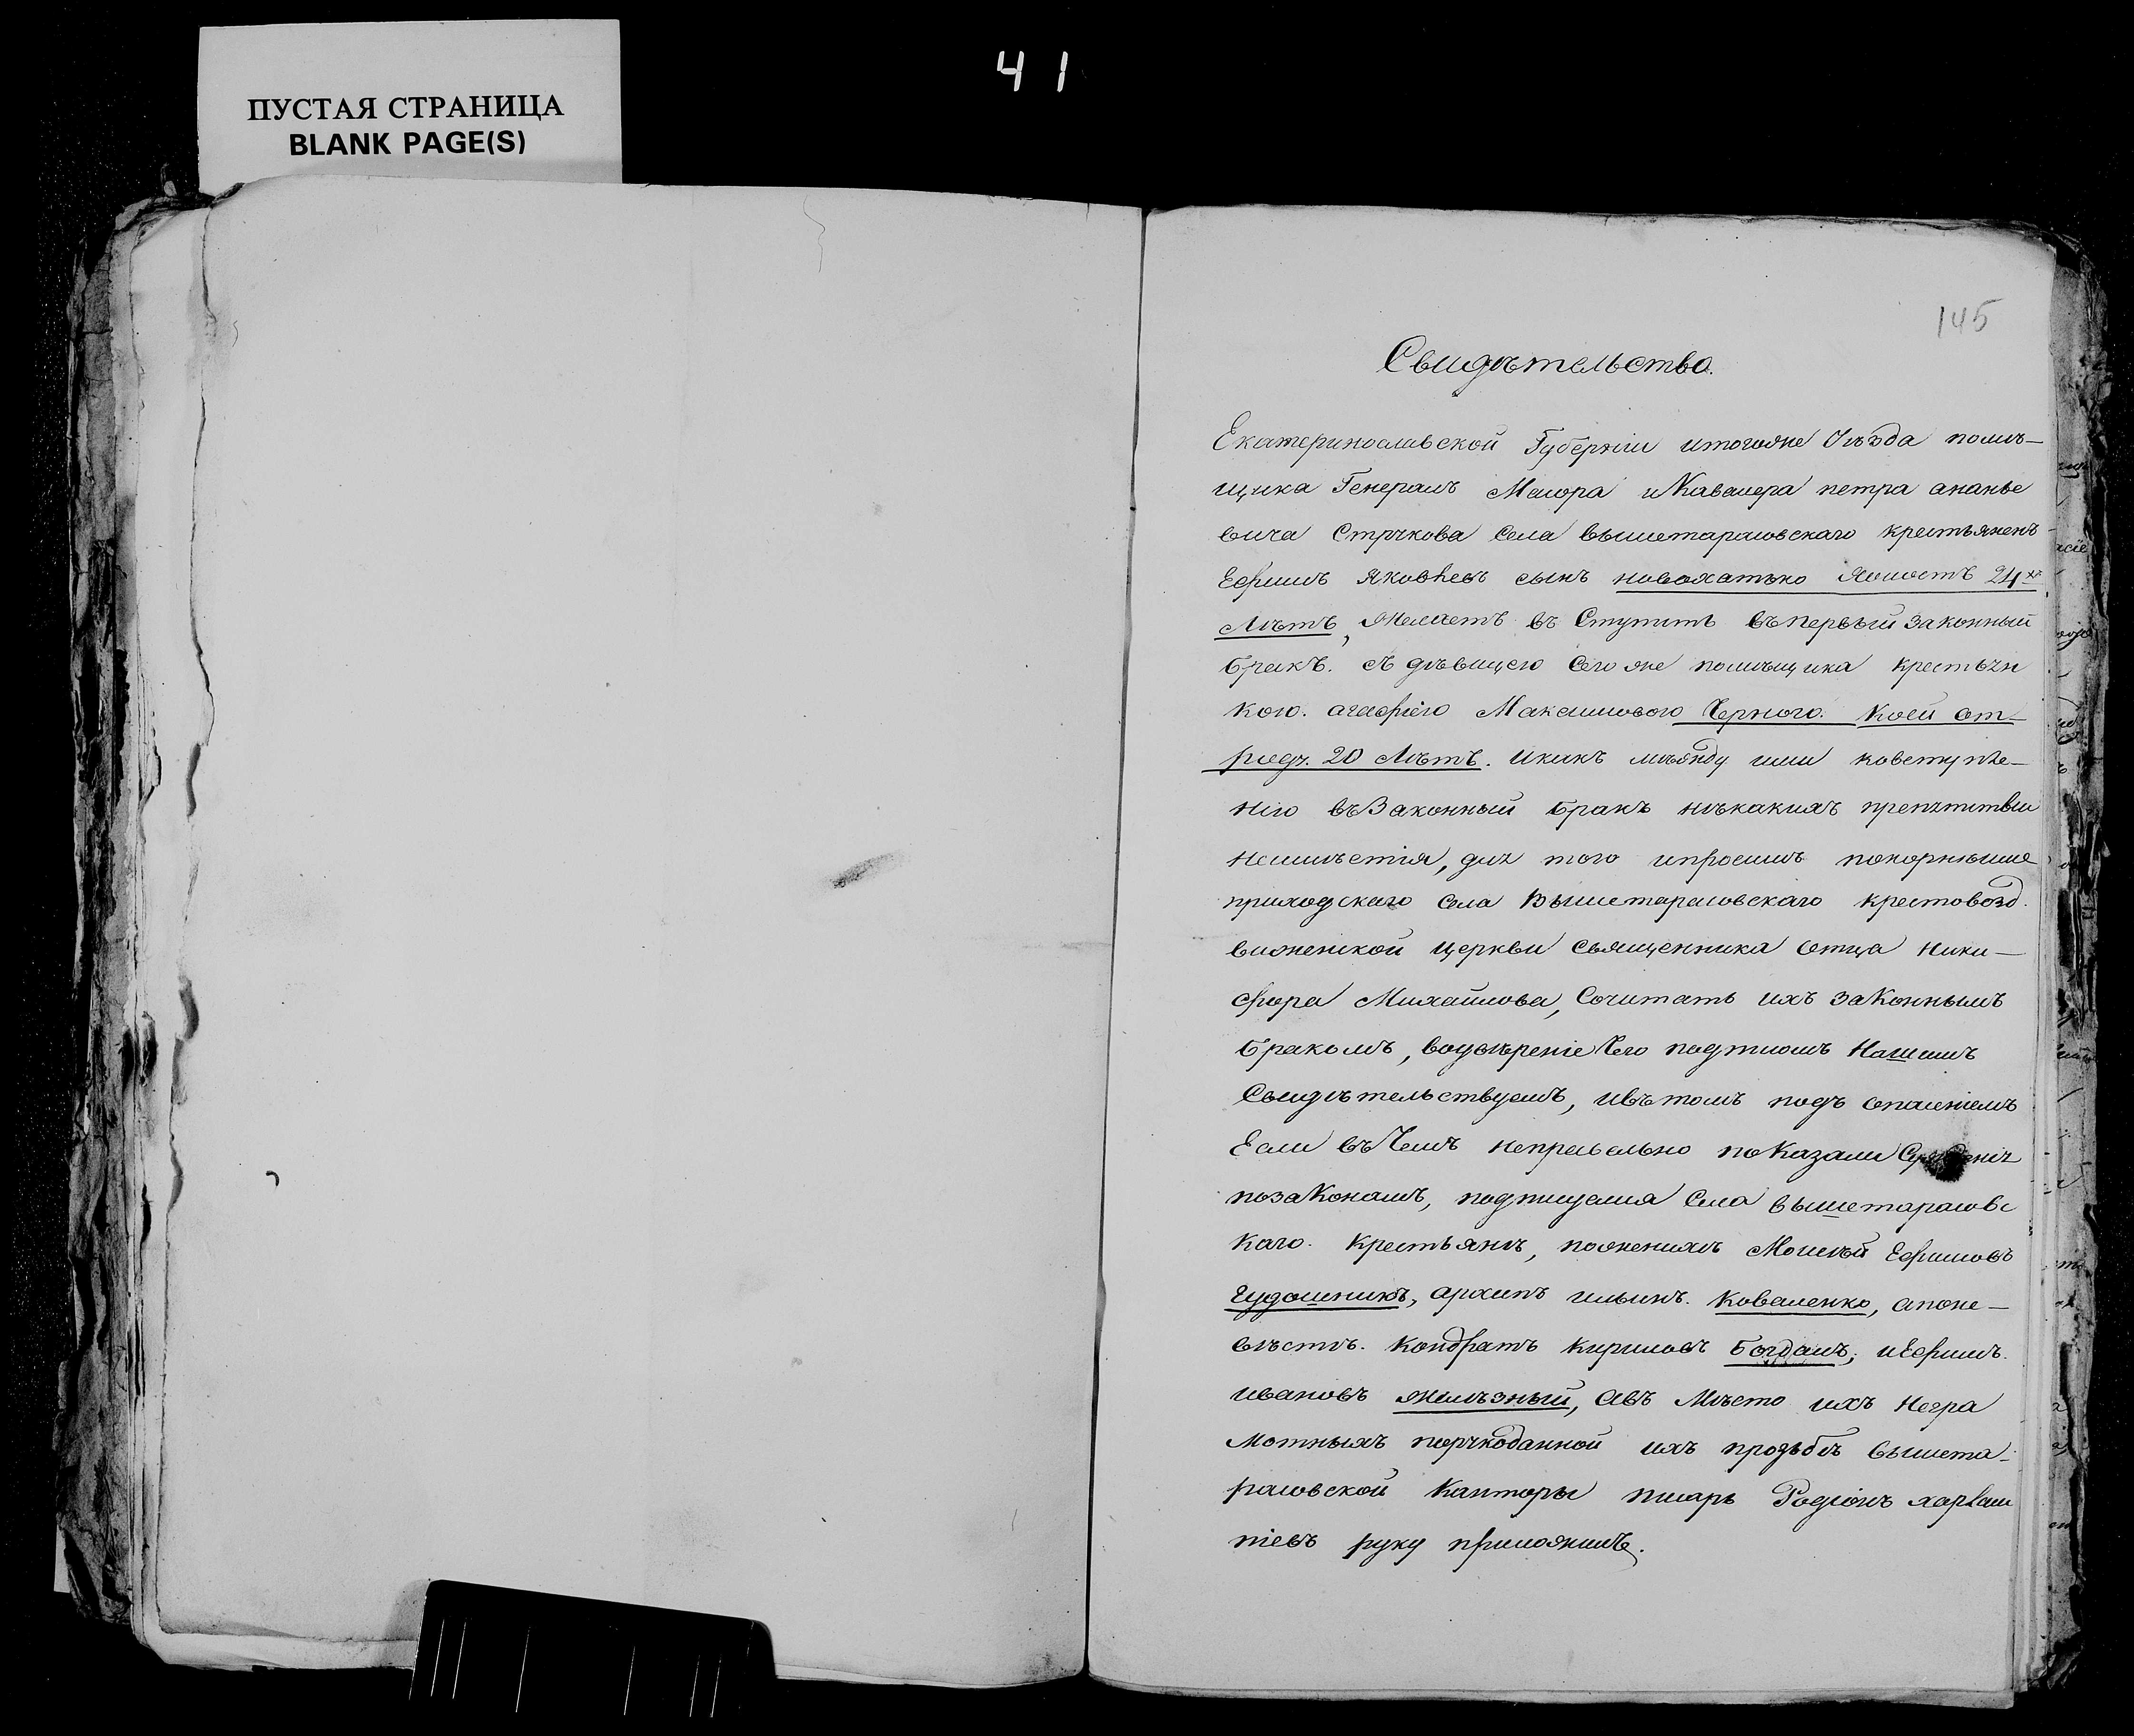 ПУСТАЯ СТРАНИЦА
BLANK PAGE(S)
41
145
Свидѣтельство.
Екатеринославской Губерніи итогоже Уѣзда помѣ-
щика Генералъ Маіора и Кавалера петра ананье
вича Стрчкова Села вышетарасовскаго крестьяненъ
Ефимъ Яковлевъ сынъ новохатько Холостъ 24хъ
Лѣтъ, Желаетъ въ Ступить въпервый законный
бракъ. съ дѣвицею Сего же помѣщика крестьян
кою. агафіею Максимовою Черною. Коей от-
роду. 20 Лѣтъ. Икакъ мѣжду ими ковступле-
нію въЗаконный бракъ нѣкакихъ препятствіи
неимѣстя, для того ипросимъ покорнѣише
приходскаго села Вышетарасовскаго крестовозд.
виженской Церкви Священника отца Ники-
фора Михайлова, Сочитать ихъ законнымъ
бракомъ, воувѣреніе Чего подписомъ Нашимъ
Свидѣтельствуемъ, ивътомъ подъ опасеніемъ
Если въЧемъ неправельно показали
позаконамъ, подпишемся Села вышетарасовс
каго. Крестьяне, поженихѣ Моисѣй Ефимовъ
Чудошникъ, архипъ ильинъ. Коваленко, апоне-
вѣстѣ. Кондратъ Кириловъ Богданъ, иЕфимъ.
ивановъ Желѣзный, Авъ Мѣсто ихъ Негра
Мотныхъ порчкоданной ихъ прозьбѣ вышета-
расовской Канторы писарь Родіонъ харлам
піевъ руку приложилъ.